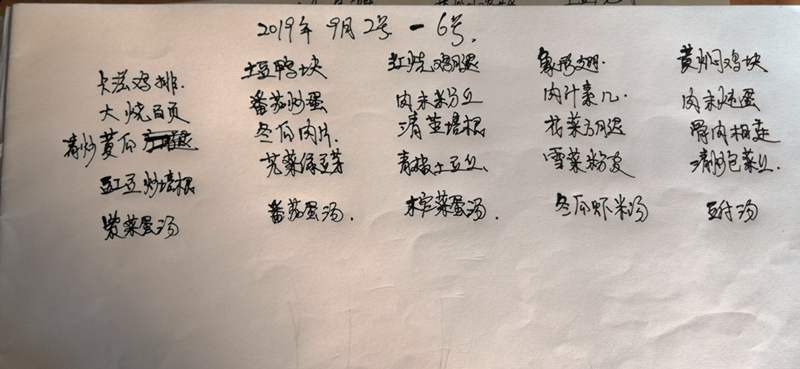 2019年 9月2号 — 6号.
卡滋鸡排. 土豆鸭块 红烧鸡腿 黄焖鸡块
大烧百页 番茄炒蛋 肉末粉丝 肉汁素几. 肉末炖蛋
青炒黄瓜 冬瓜肉片. 清蒸培根 花菜方腿
豇豆炒培根 芹菜绿豆芽 青椒土豆丝. 雪菜粉皮 清炒包菜丝.
紫菜蛋汤 番茄蛋汤. 榨菜蛋汤. 冬瓜虾米汤 豆付汤